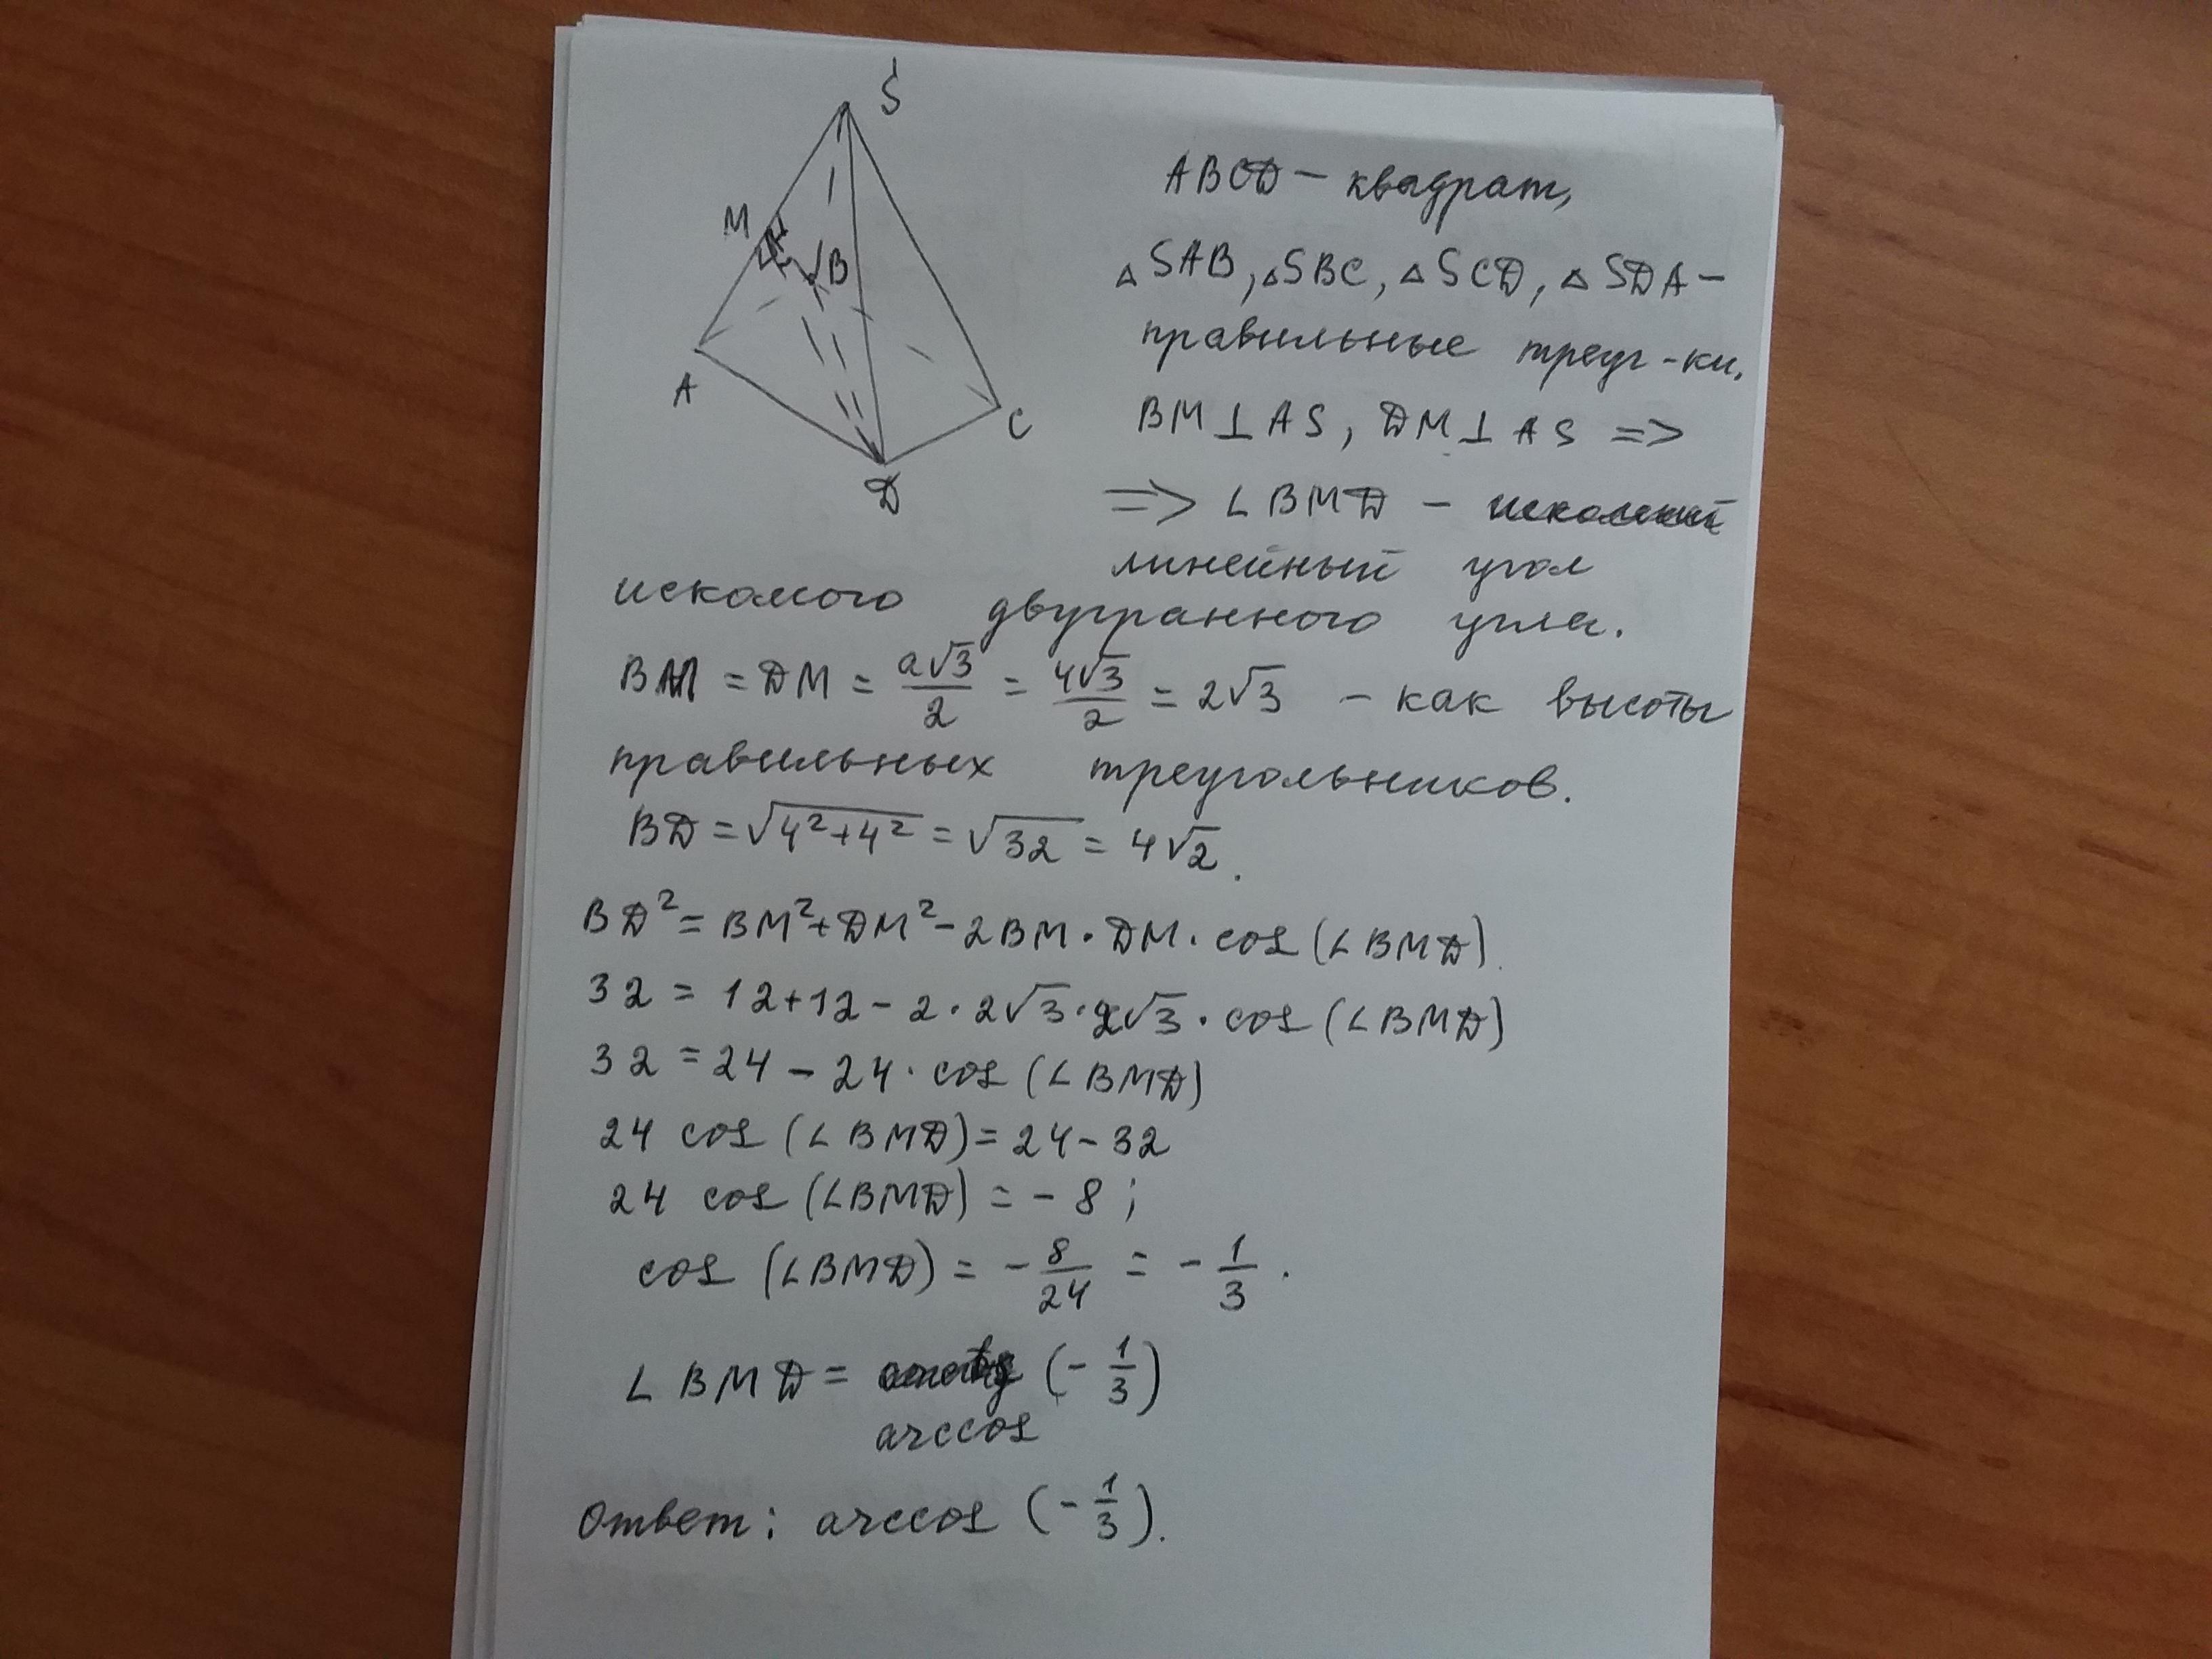 S
M
B
A
C
D
ABCD – квадрат,
△SAB, △SBC, △SCD, △SDA –
правильные треуг-ки.
BM⊥AS, DM⊥AS =>
=> ∠BMD –
линейный угол
искомого двугранного угла.
BM = DM = a√3/2 = 4√3/2 = 2√3 – как высоты
правильных треугольников.
BD = √(4²+4²) = √32 = 4√2.
BD² = BM²+DM²–2BM·DM·cos(∠BMD).
32 = 12+12–2·2√3·2√3·cos(∠BMD)
32 = 24–24·cos(∠BMD)
24 cos(∠BMD) = 24–32
24 cos(∠BMD) = –8;
cos(∠BMD) = –8/24 = –1/3.
∠BMD = (–1/3)
arccos
Ответ: arccos(–1/3).